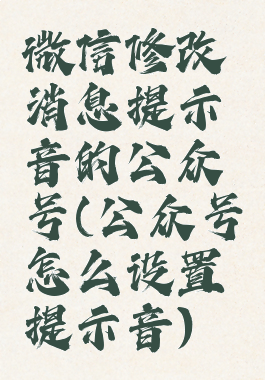 微信修改
消息提示
音的公众
号(公众号
怎么设置
提示音)